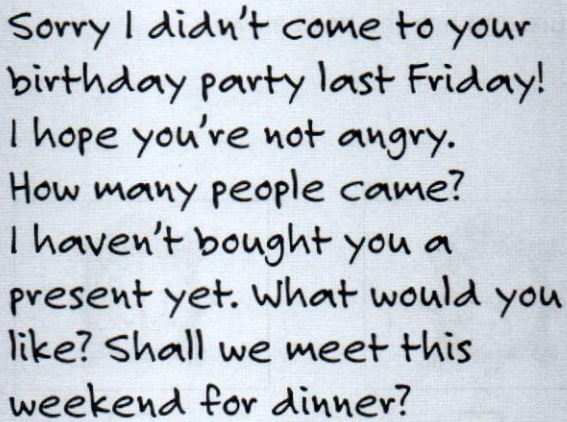 Sorry I didn't come to your
birthday party last Friday!
I hope you're not angry.
How many people came?
I haven't bought you a
present yet. What would you
like? Shall we meet this
weekend for dinner?